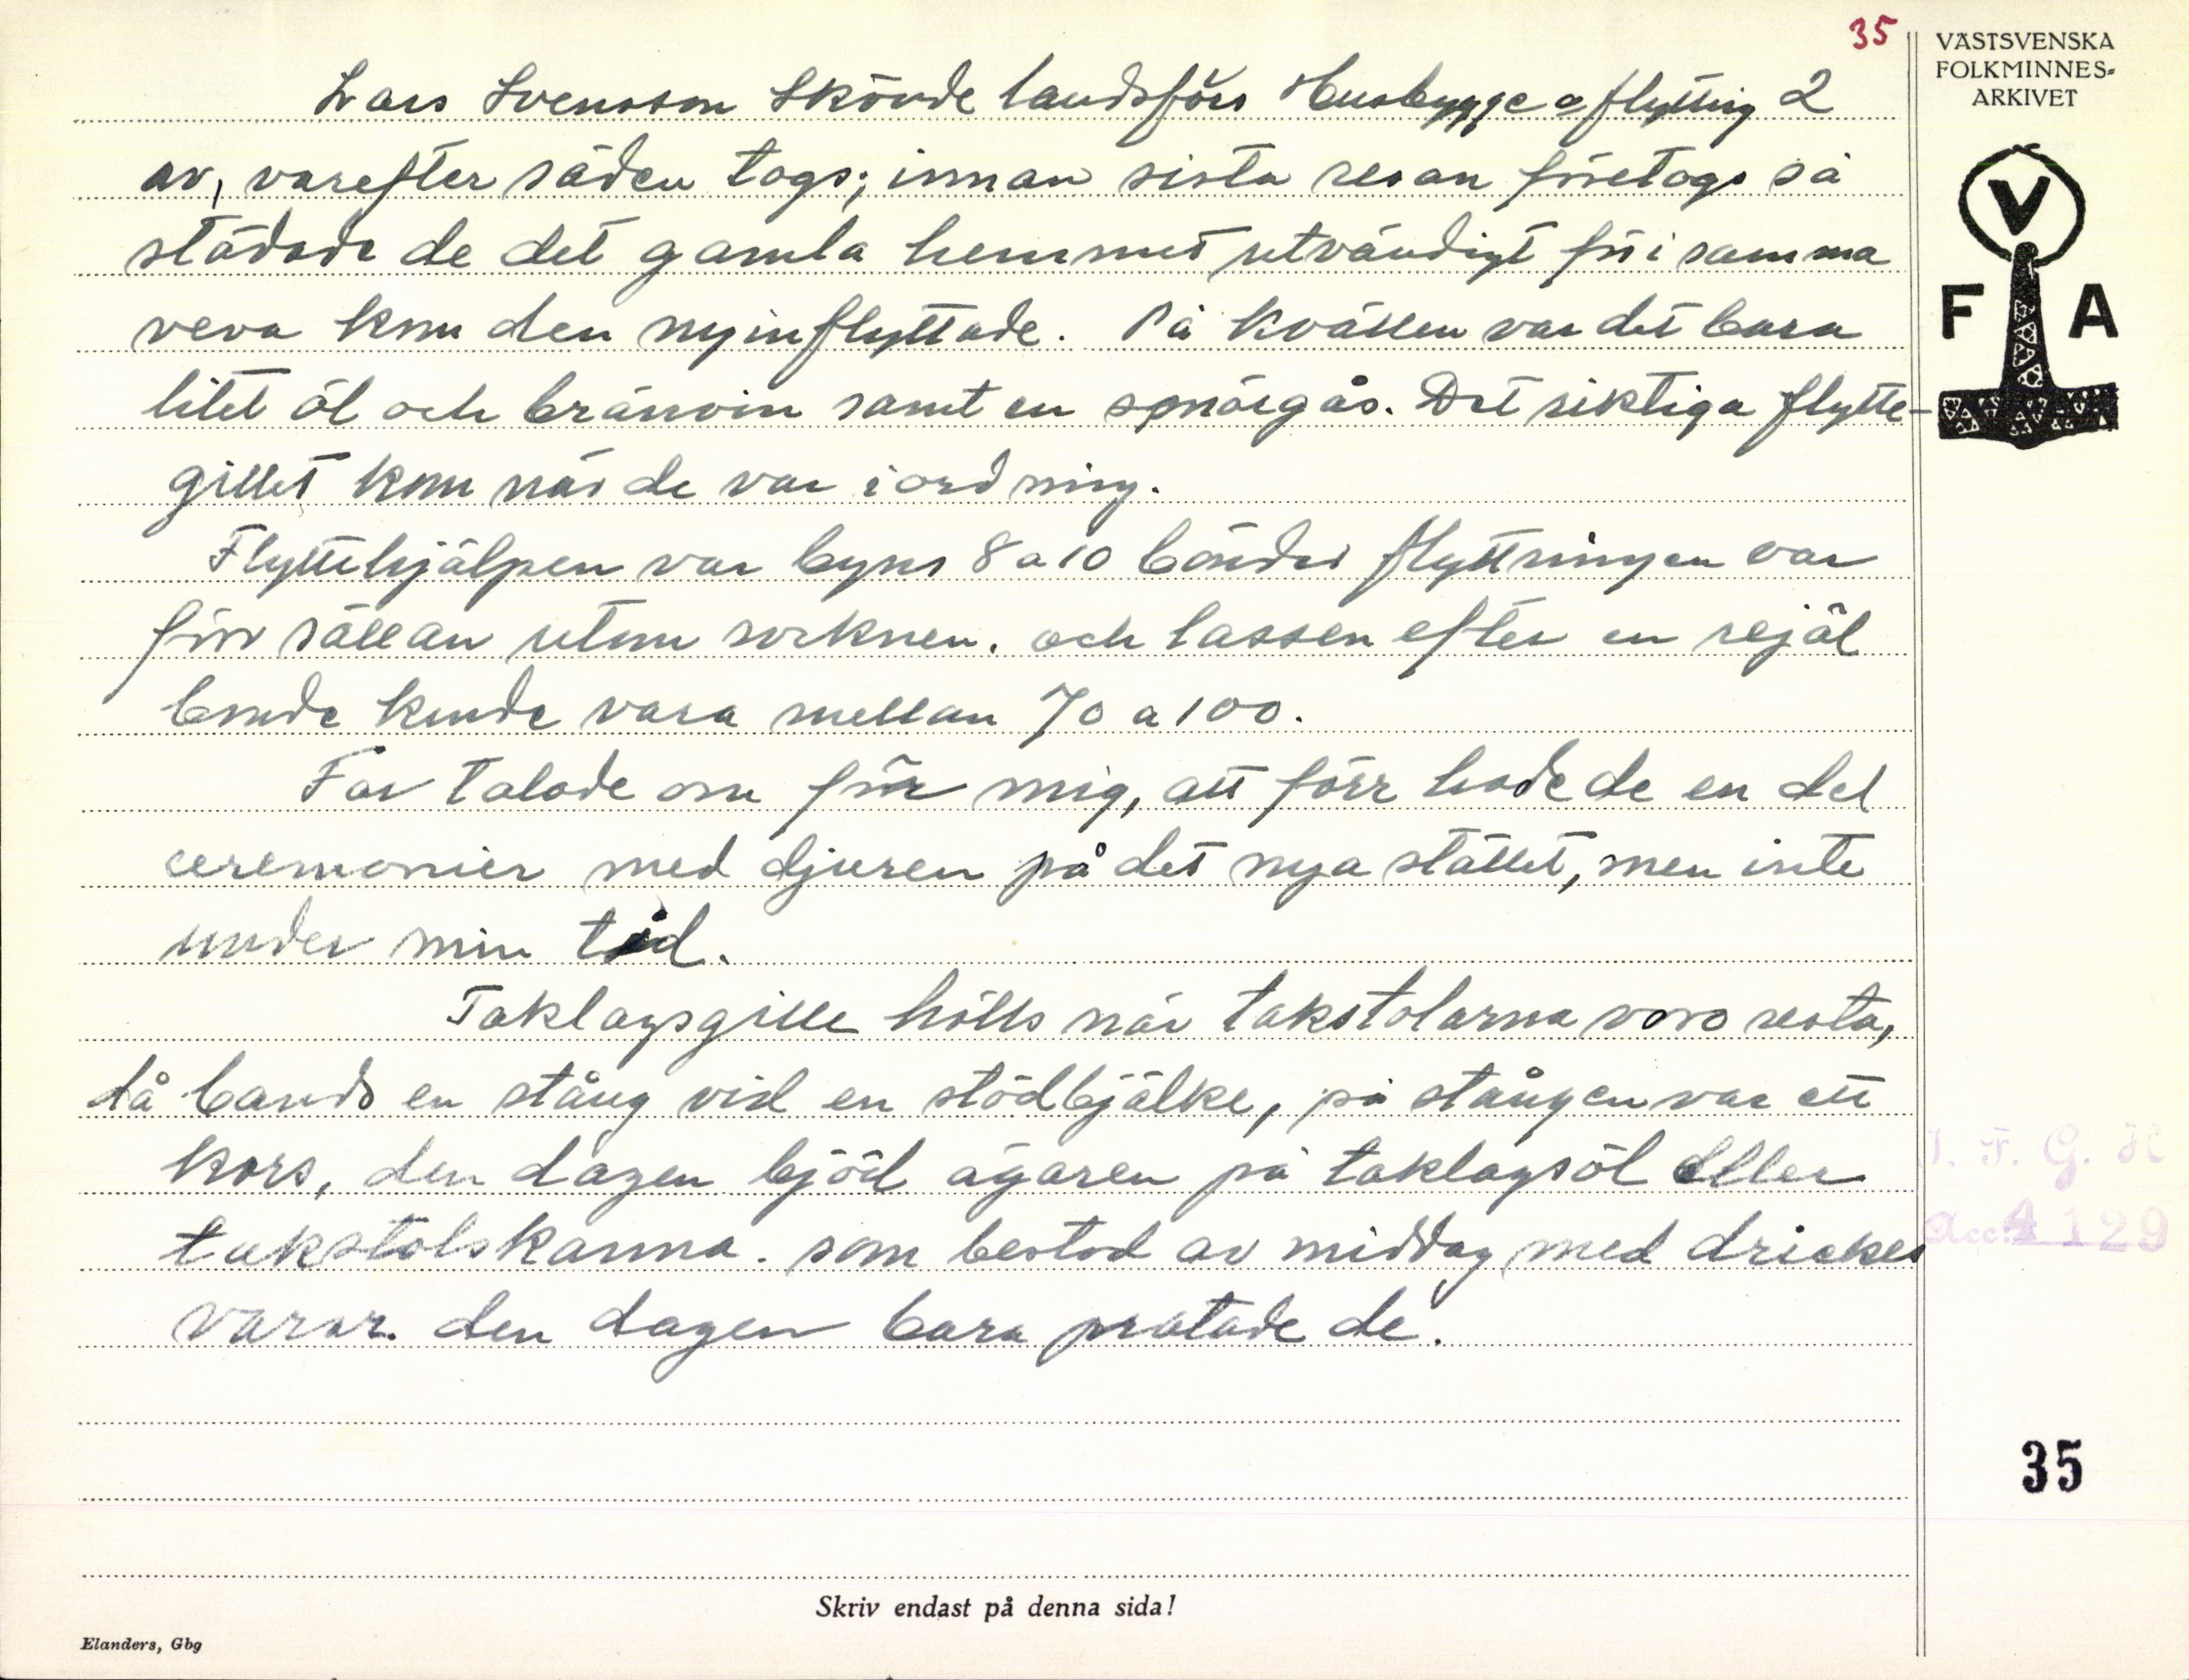 35
VÄSTSVENSKA
FOLKMINNES-
ARKIVET
Lars Svensson Skövde landsförs Husbygge o flyttnig 2
av, varefter säden togs; innan sista resan företogs så
städade de det gamla hemmet utvändigt för i samma
veva kom den nyinflyttade. På kvällen var det bara
litet öl och bränvin samt en smörgås. Det riktiga flytte-
gillet kom när de var i ordning.
Flyttehjälpen var byns 8 a 10 bönder flyttningen var
förr sällan utom socknen. och lassen efter en rejäl
bonde kunde vara mellan 70 a 100.
Far talade om för mig, att förr hade de en del
ceremonier med djuren på det nya stället, men inte
under min tid.
Taklagsgille hölls när takstolarna voro resta,
då bands en stång vid en stödbjälke, på stången var ett
kors, den dagen bjöd ägaren på taklagsöl eller
takstolskanna. som bestod av middag med drickes
varor. den dagen bara pratade de.
V
F A
I. F. G. H
Acc. 4129
35
Skriv endast på denna sida!
Elanders, Gbg